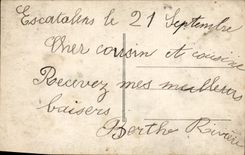 Escatalens le 21 Septembre
Cher cousin et cousine
Recevez mes meilleurs
baisers
Berthe Rivière